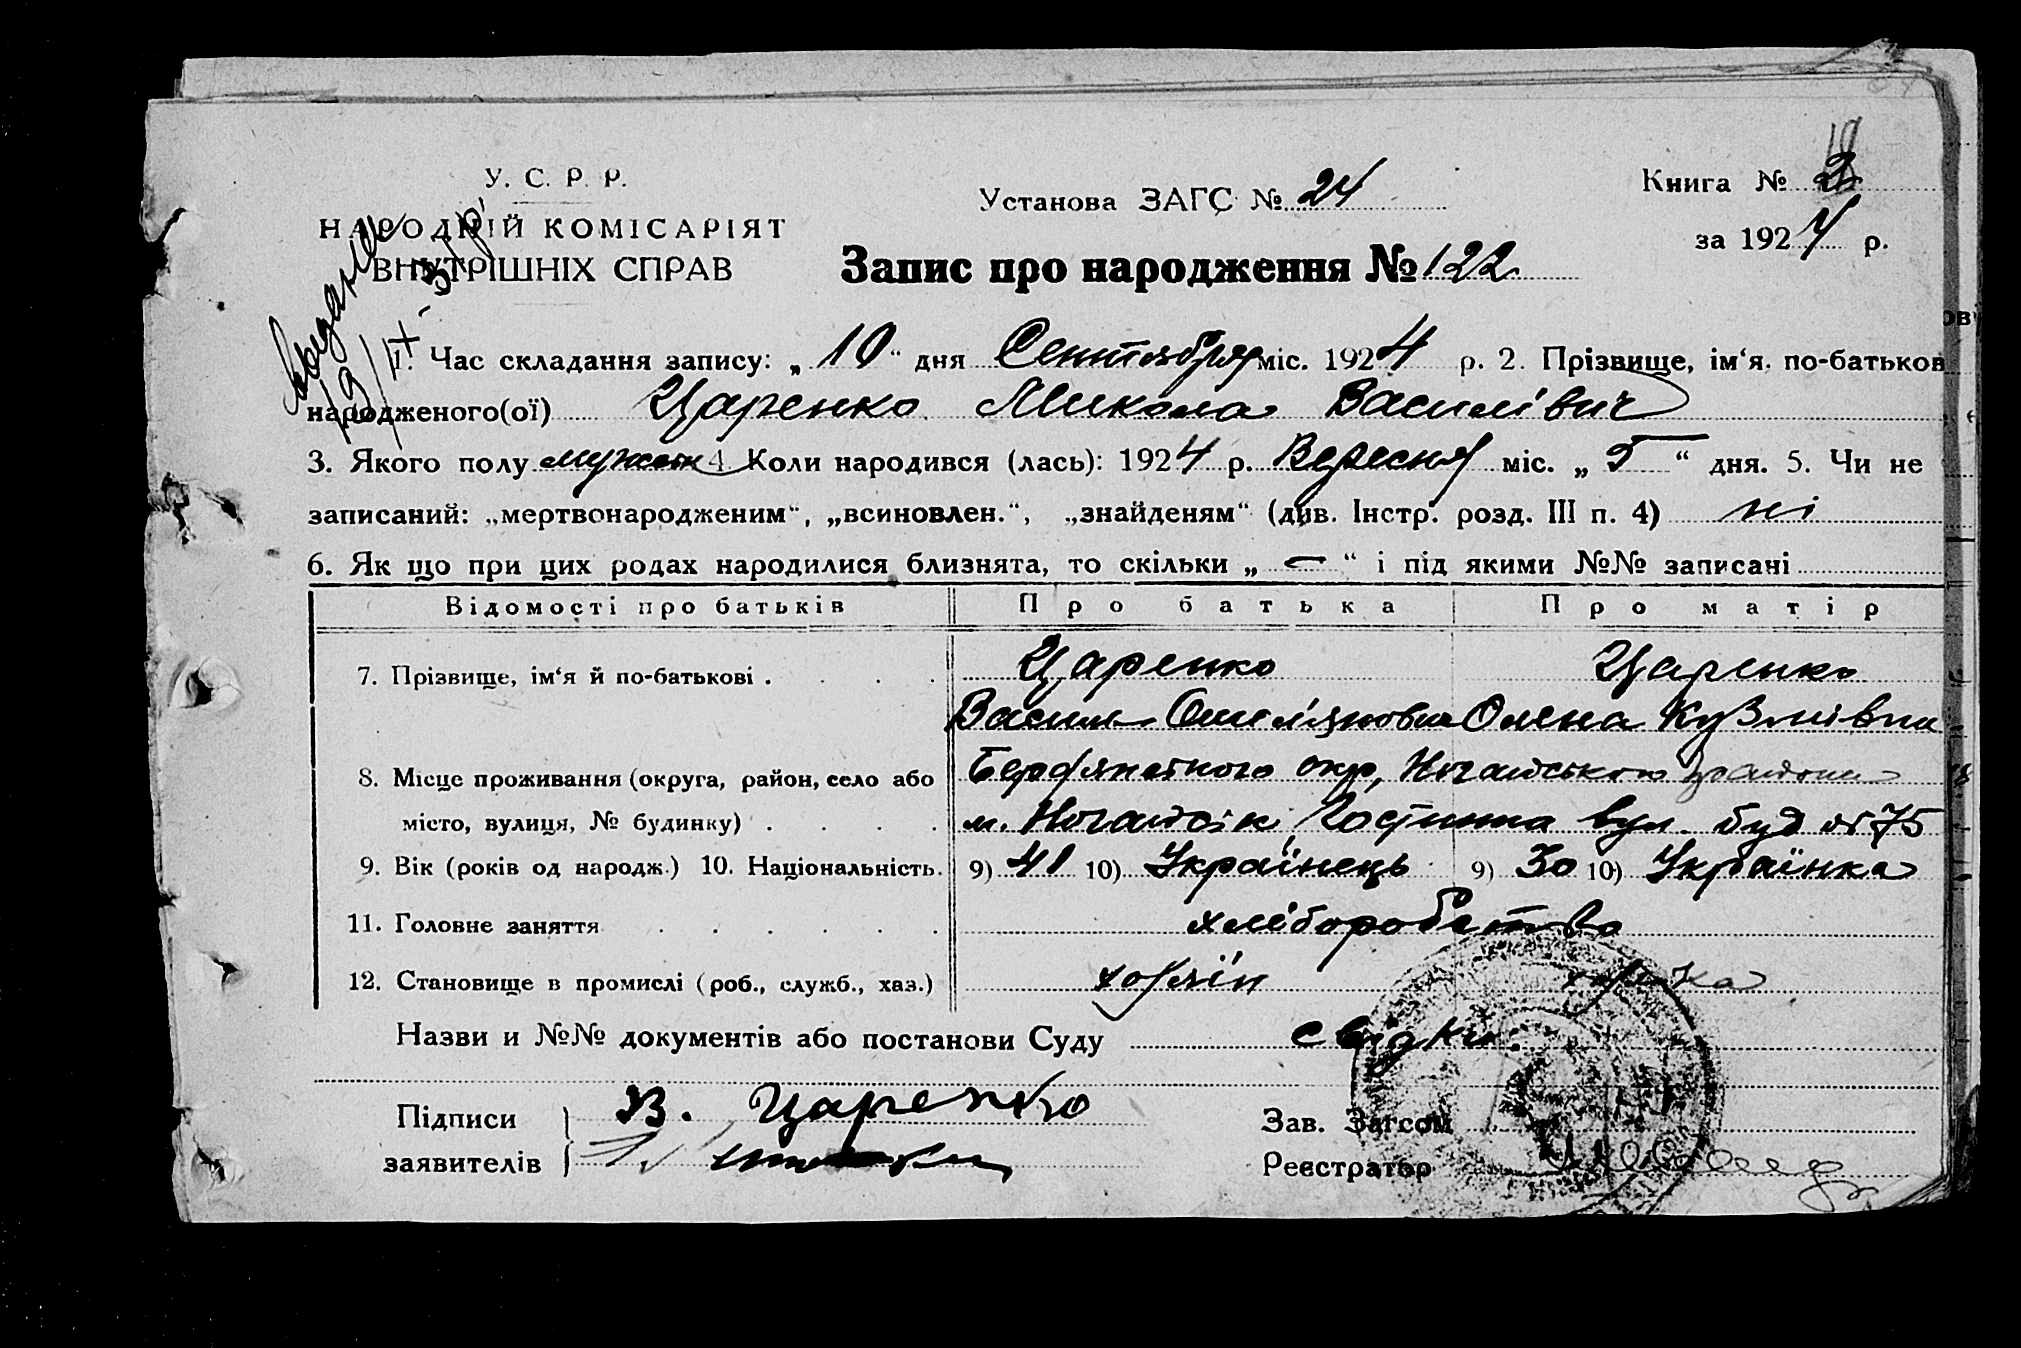 У. С. Р. Р.
НАРОДНІЙ КОМІСАРІЯТ
ВНУТРІШНІХ СПРАВ
Установа ЗАГС № 24
Книга № 2
за 1924 р.
Запис про народження № 122
1. Час складання запису: „10“ дня Сентября міс. 1924 р. 2. Прізвище, ім‘я, по-батьков
народженого(ої) Царенко Микола Василівич
3. Якого полу мужеск 4. Коли народився (лась): 1924 р. Вересня міс. „5“ дня. 5. Чи не
записаний: „мертвонародженим“, „всиновлен.“, „знайденям“ (див. Інстр. розд. III п. 4) ні
6. Як що при цих родах народилися близнята, то скільки „ — “ і під якими №№ записані
Відомості про батьків Про батька Про матір
7. Прізвище, ім‘я й по-батькові Царенко Царенко
Василь Олена Кузмівна
8. Місце проживання (округа, район, село або окр,
місто, вулиця, № будинку) м. Ногайськ, вул. буд № 75
9. Вік (років од народж.) 10. Національність. 9) 41 10) Українець 9) 30 10) Українка
11. Головне заняття хліборобство
12. Становище в промислі (роб., служб., хаз.)
Назви и №№ документів або постанови Суду свідки:
Підписи В. Царенко Зав. Загсом
заявителів Реєстратор